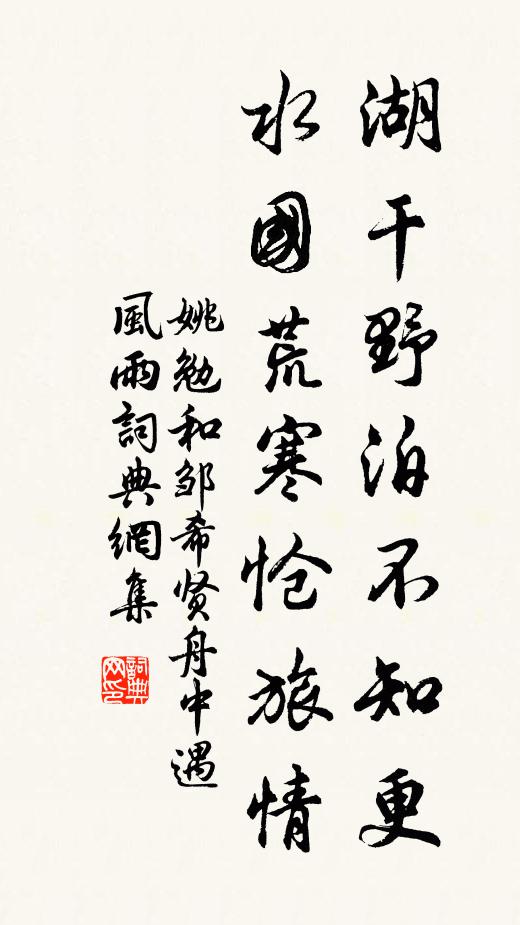 湖干野泊不知更
水國荒寒怆旅情
姚勉和邹希贤舟中遇
風雨詞典網集
詞典
网印